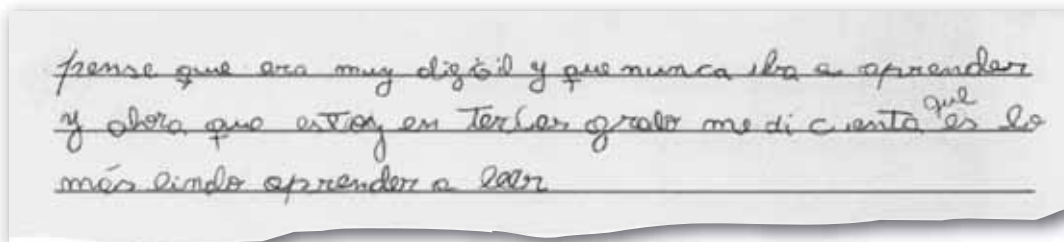 pense que era muy digísil y que nunca iba a aprender
y ahora que estoy en tercer grado me di cienta que es lo
más lindo aprender a leer